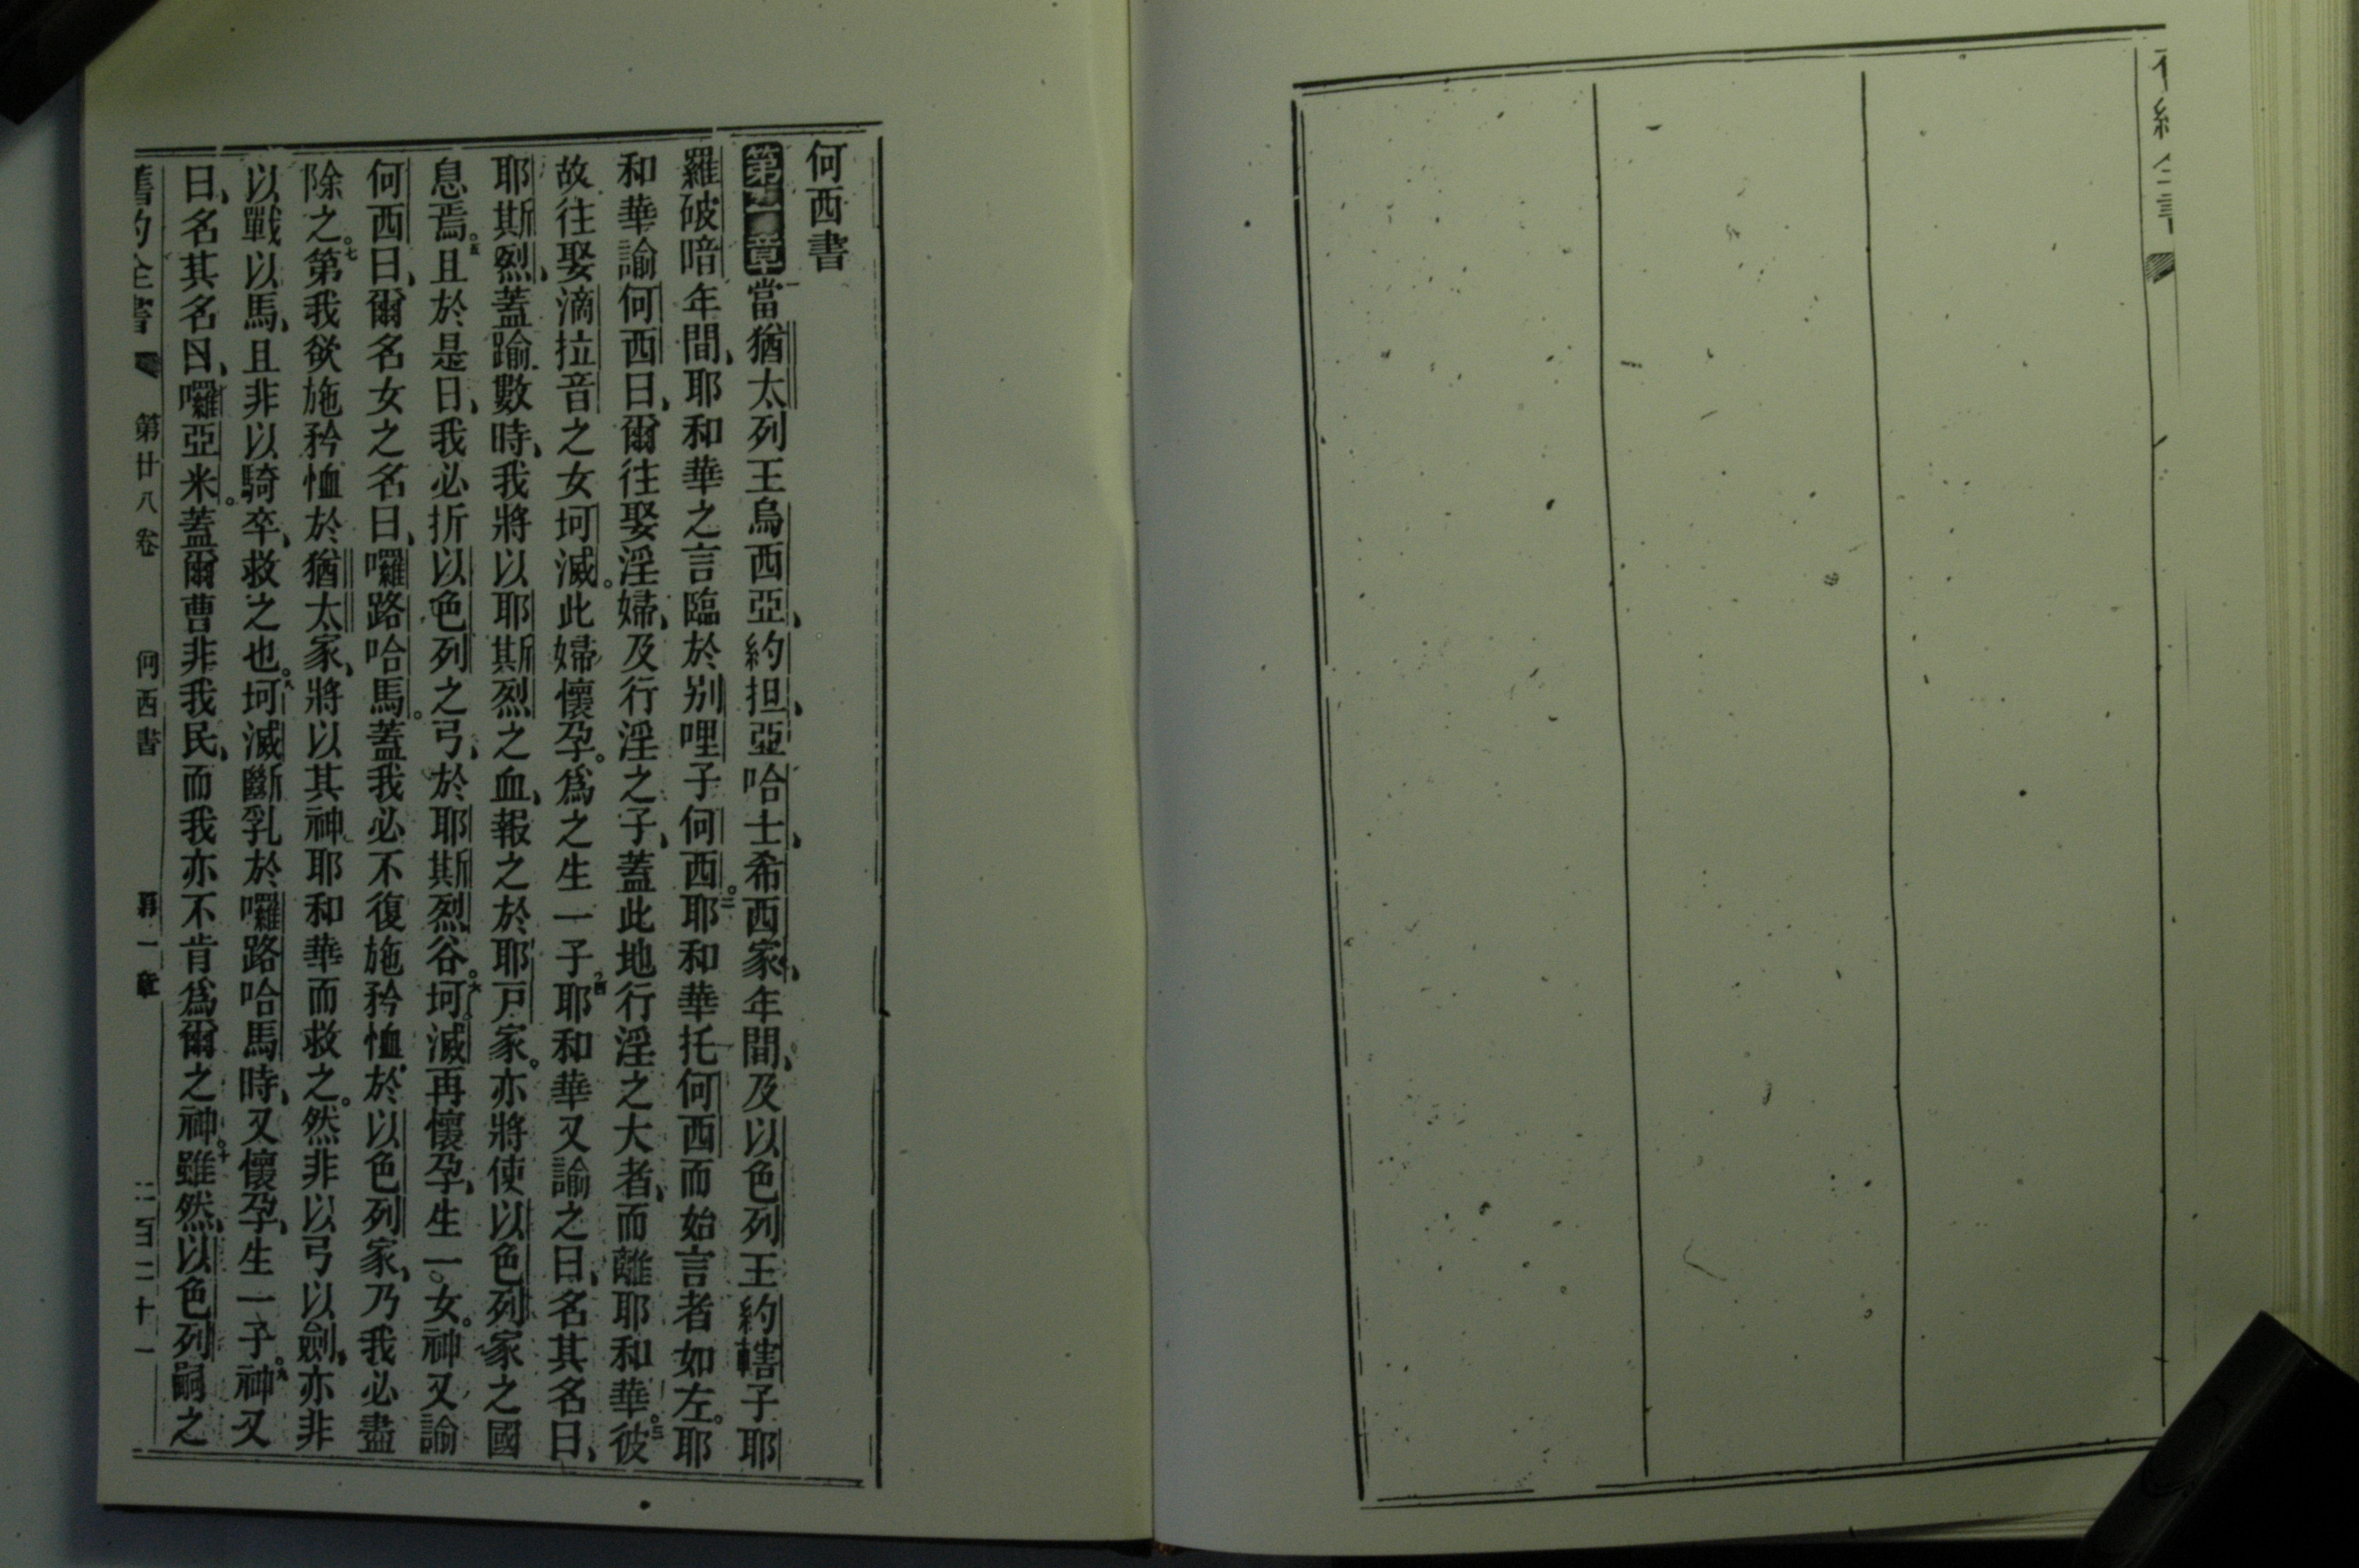 何西書
第一章當猶太列王烏西亞、約担、亞哈士、希西家、年間、及以色列王約轄子耶
羅破暗年間、耶和華之言臨於別哩子何西。二耶和華托何西而始言者如左。耶
和華諭何西曰、爾往娶淫婦、及行淫之子、蓋此地行淫之大者、而離耶和華。三彼
故往娶滴拉音之女坷滅。此婦懷孕。爲之生一子、四耶和華又諭之曰、名其名曰、
耶斯烈、蓋踰數時、我將以耶斯烈之血、報之於耶戸家。亦將使以色列家之國
息焉。五且於是日、我必折以色列之弓、於耶斯烈谷。六坷滅再懷孕、生一女。神又諭
何西曰、爾名女之名曰、囉路哈馬。蓋我必不復施矜恤於以色列家、乃我必盡
除之。七第我欲施矜恤於猶太家、將以其神耶和華而救之。然非以弓以劍、亦非
以戰以馬、且非以騎卒、救之也。八坷滅斷乳於囉路哈馬時、又懷孕、生一子。九神又
曰、名其名曰、囉亞米。蓋爾曹非我民、而我亦不肯爲爾之神。十雖然、以色列嗣之
舊約全書 第廿八卷 何西書 第一章 二百二十一